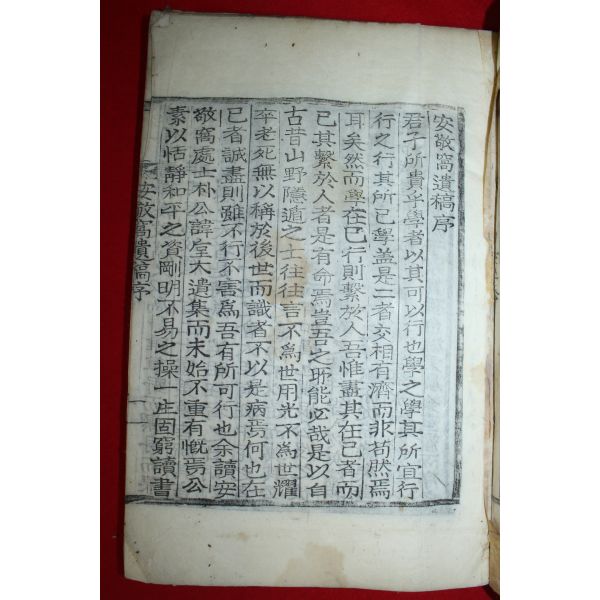 安敬窩遺稿序
君子所貴乎學者以其可以行也學之學其所宜行
行之行其所已學盖是二者交相有濟而非苟然焉
耳矣然而學在己行則繫於人吾惟盡其在己者而
已其繫於人者是有命焉豈吾之所能必哉是以自
古昔山野隱遁之士往往言不爲世用光不爲世耀
卒老死無以稱於後世而識者不以是病焉何也在
己者誠盡則雖不行不害爲吾有所可行也余讀安
敬窩處士朴公諱堂大遺集而未始不重有慨焉公
素以恬靜和平之資剛明不易之操一生固窮讀書
安敬窩遺稿序
一